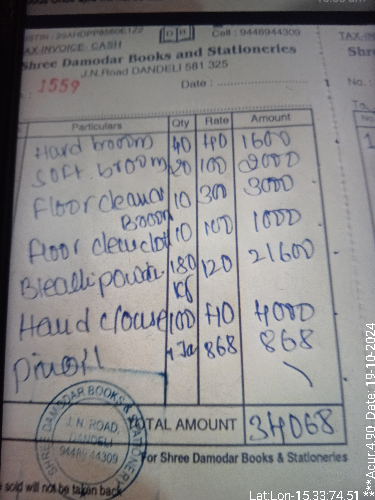 GSTIN : 29AHDPP8560E1Z2 Cell : 9448944309
TAX-INVOICE CASH
Shree Damodar Books and Stationeries
J.N.Road DANDELI 581 325
1559 Date :
Particulars Qty Rate Amount
Hard broom 40 40 1600
Soft broom 20 100 2000
Floor cleanar 10 300 3000
Broom
Floor clewclot 10 100 1000
Bleachipowder 180 120 21600
Kg
Hand clouse 100 40 4000
Pinoil 868 868
TOTAL AMOUNT 34068
SHREE DAMODAR BOOKS & STATIONERY
J. N. ROAD,
DANDELI
9448944309
For Shree Damodar Books & Stationeries
sold will not be taken back
Lat.Lon-15.33:74.51
***Acur:4.90 Date: 19-10-2024